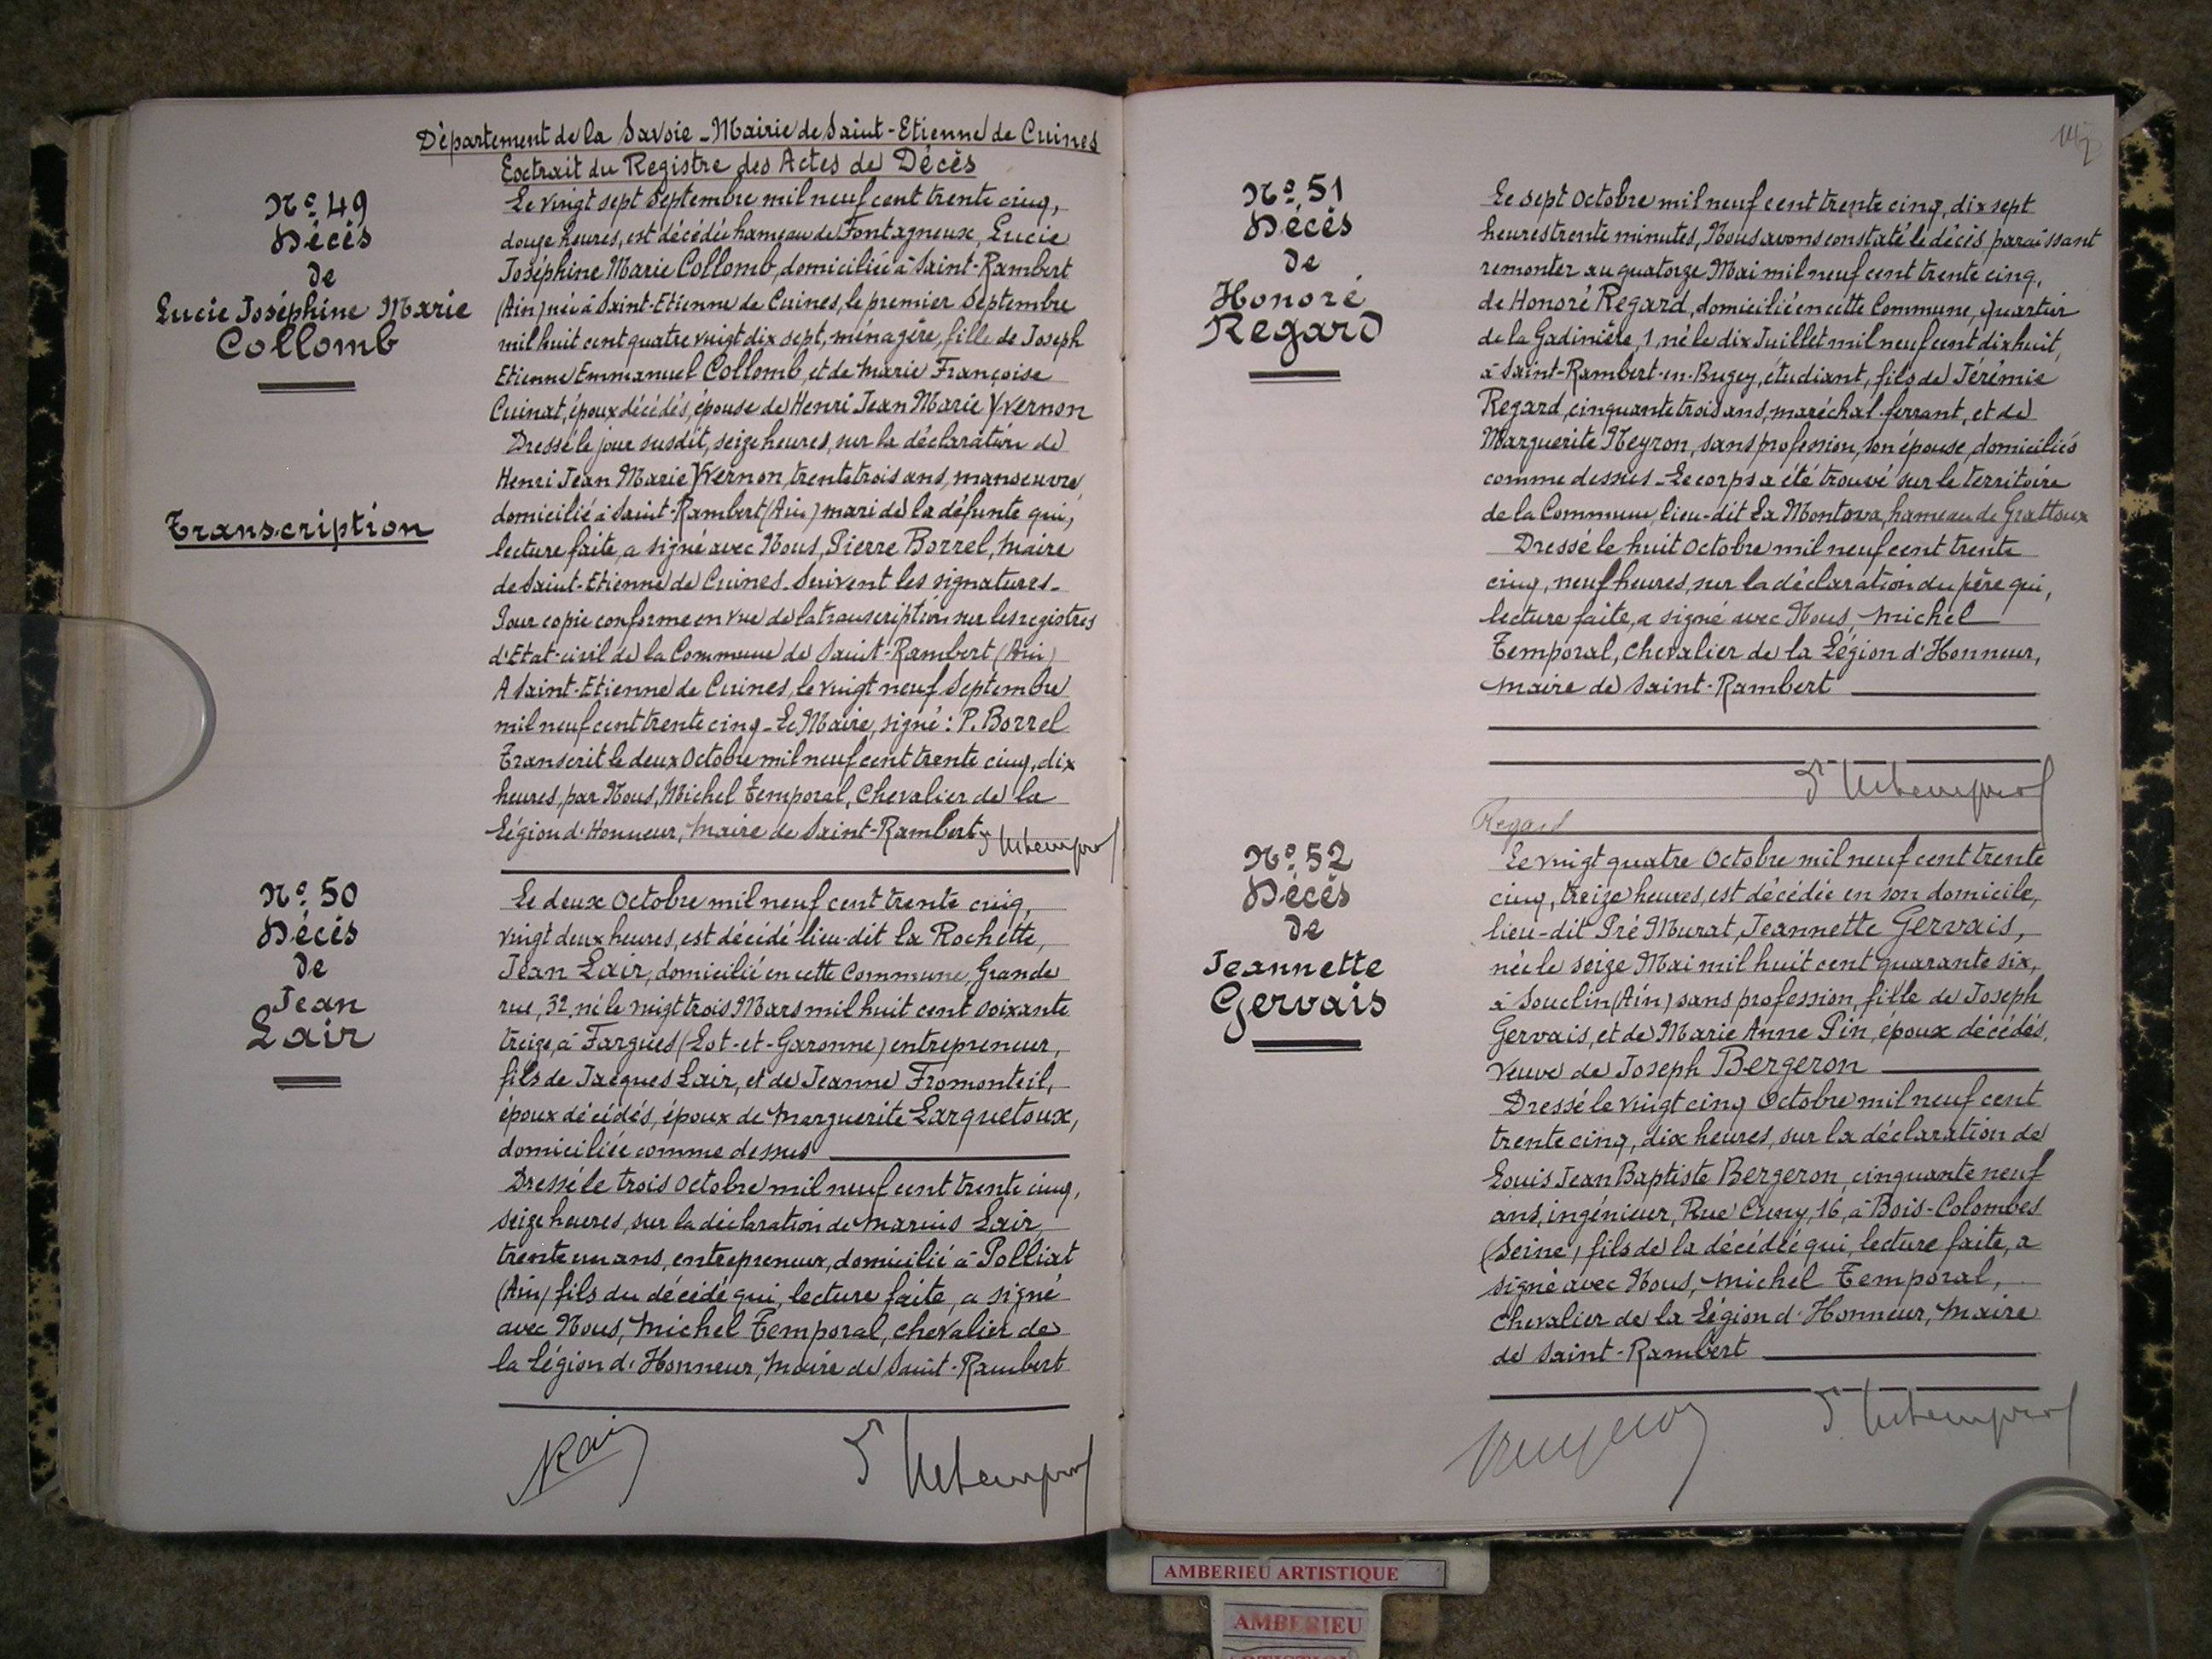 Département de la Savoie - Mairie de Saint-Etienne de Cuines
Extrait du Registre des Actes de Décès
Nº 49
Décès
de
Lucie Joséphine Marie
Collomb
Transcription
Le vingt sept Septembre mil neuf cent trente cinq,
douze heures, est décédée hameau de Fontagneux, Lucie
Joséphine Marie Collomb, domiciliée à Saint-Rambert
(Ain) née à Saint-Etienne de Cuines, le premier Septembre
mil huit cent quatre vingt dix sept, ménagère, fille de Joseph
Etienne Emmanuel Collomb, et de Marie Françoise
Cuinat, époux décédés, épouse de Henri Jean Marie Yvernon
Dressé le jour susdit, seize heures, sur la déclaration de
Henri Jean Marie Yvernon, trente trois ans, manoeuvre
domicilié à Saint-Rambert (Ain) mari de la défunte qui,
lecture faite, a signé avec Nous, Pierre Borrel, Maire
de Saint-Etienne de Cuines. Suivent les signatures -
Pour copie conforme en vue de la transcription sur les registres
d'Etat-civil de la Commune de Saint-Rambert (Ain)
A Saint-Etienne de Cuines, le vingt neuf Septembre
mil neuf cent trente cinq - Le Maire, signé : P. Borrel
Transcrit le deux Octobre mil neuf cent trente cinq, dix
heures, par Nous, Michel Temporal, Chevalier de la
Légion d'Honneur, Maire de Saint-Rambert
Nº 50
Décès
de
Jean
Lair
Le deux Octobre mil neuf cent trente cinq,
vingt deux heures, est décédé lieu-dit la Rochette,
Jean Lair, domicilié en cette Commune, Grande
rue, 32, né le vingt trois Mars mil huit cent soixante
treize, à Fargues (Lot-et-Garonne) entrepreneur,
fils de Jacques Lair, et de Jeanne Fromonteil,
époux décédés, époux de Marguerite Larquetoux,
domiciliée comme dessus
Dressé le trois Octobre mil neuf cent trente cinq,
seize heures, sur la déclaration de Marius Lair,
trente un ans, entrepreneur, domicilié à Polliat
(Ain) fils du décédé qui, lecture faite, a signé
avec Nous, Michel Temporal, Chevalier de
la Légion d'Honneur, Maire de Saint-Rambert
Nº 51
Décès
de
Honoré
Regard
Le sept Octobre mil neuf cent trente cinq, dix sept
heures trente minutes, Nous avons constaté le décès, paraissant
remonter au quatorze Mai mil neuf cent trente cinq,
de Honoré Regard, domicilié en cette Commune, quartier
de la Gadinière, 1, né le dix Juillet mil neuf cent dix huit,
à Saint-Rambert-en-Bugey, étudiant, fils de Jérémie
Regard, cinquante trois ans, maréchal-ferrant, et de
Marguerite Neyron, sans profession, son épouse, domiciliés
comme dessus - Le corps a été trouvé sur le territoire
de la Commune, lieu-dit La Montova, hameau de Grattoux
Dressé le huit Octobre mil neuf cent trente
cinq, neuf heures, sur la déclaration du père qui,
lecture faite, a signé avec Nous, Michel
Temporal, Chevalier de la Légion d'Honneur,
Maire de Saint-Rambert
Regard
Nº 52
Décès
de
Jeannette
Gervais
Le vingt quatre Octobre mil neuf cent trente
cinq, treize heures, est décédée en son domicile,
lieu-dit Pré Murat, Jeannette Gervais,
née le seize Mai mil huit cent quarante six,
à Souclin (Ain) sans profession, fille de Joseph
Gervais, et de Marie Anne Pin, époux décédés,
Veuve de Joseph Bergeron
Dressé le vingt cinq Octobre mil neuf cent
trente cinq, dix heures, sur la déclaration de
Louis Jean Baptiste Bergeron, cinquante neuf
ans, ingénieur, Rue Cuny, 16, à Bois-Colombes
(Seine) fils de la décédée qui, lecture faite, a
signé avec Nous, Michel Temporal,
Chevalier de la Légion d'Honneur, Maire
de Saint-Rambert
AMBERIEU ARTISTIQUE
AMBERIEU
ARTISTIQUE